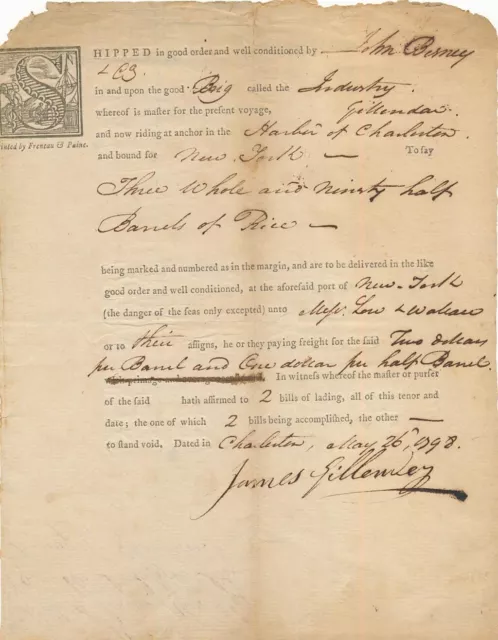 SHIPPED in good order and well conditioned by John Birney
& Co.
in and upon the good Brig called the Industry
whereof is master for the present voyage, Gillender
and now riding at anchor in the Harbr of Charleston
Printed by Freneau & Paine.
and bound for New-York — To say
Three Whole and ninety half
Barrels of Rice —
being marked and numbered as in the margin, and are to be delivered in the like
good order and well conditioned, at the aforesaid port of New-York
(the danger of the seas only excepted) unto Messrs. Low & Wallace
or to their assigns, he or they paying freight for the said Two dollars
per Barrel and One dollar per half Barrel.
In witness whereof the master or purser
of the said hath affirmed to 2 bills of lading, all of this tenor and
date; the one of which 2 bills being accomplished, the other —
to stand void. Dated in Charleston, May 26th, 1798.
James Gillender